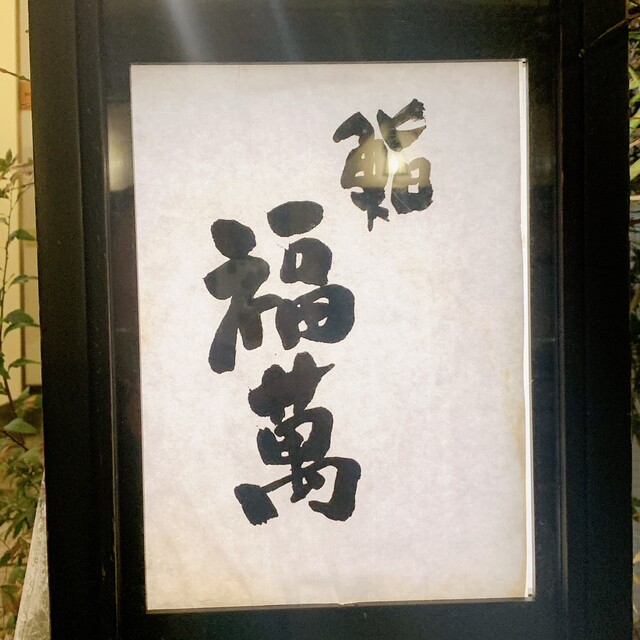 鮨
福萬